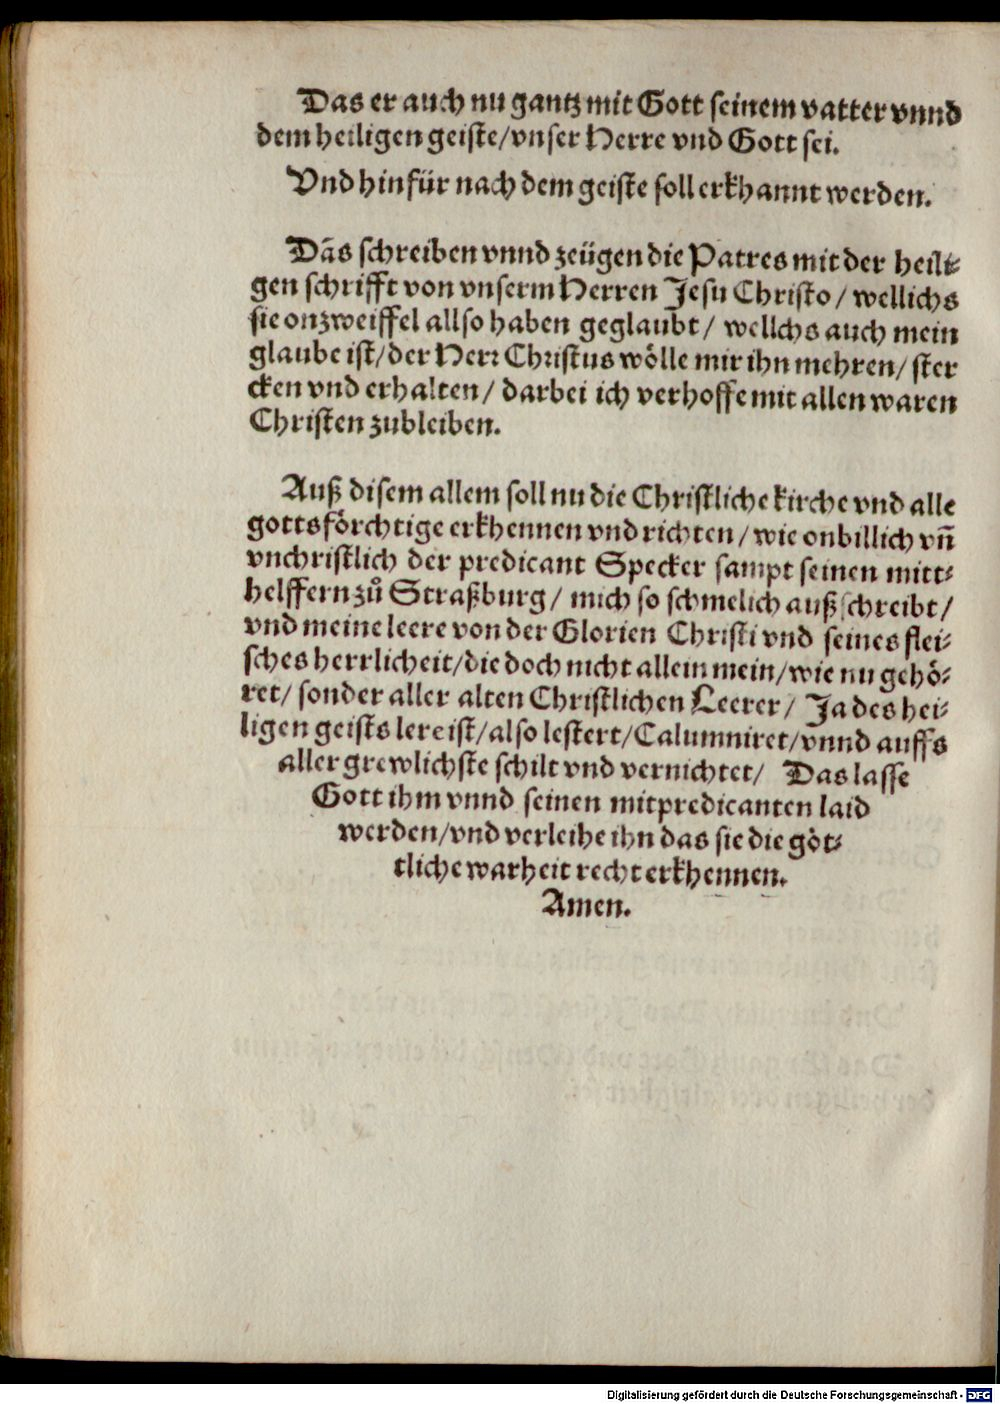 Das er auch nu gantz mit Gott seinem vatter vnnd
dem heiligen geiste/vnser Herre vnd Gott sei.
Vnd hinfür nach dem geiste soll erkhannt werden.
Dãs schreiben vnnd zeügen die Patres mit der heili-
gen schrifft von vnserm Herren Jesu Christo/ wellichs
sie onzweiffel allso haben geglaubt/ wellchs auch mein
glaube ist/der Herr Christus wölle mir ihn mehren/ ster
cken vnd erhalten/ darbei ich verhoffe mit allen waren
Christen zubleiben.
Auß disem allem soll nu die Christliche kirche vnd alle
gottsförchtige erkhennen vnd richten/ wie onbillich vñ
vnchristlich der predicant Specker sampt seinen mitt-
helffern zů Straßburg/ mich so schmelich außschreibt/
vnd meine leere von der Glorien Christi vnd seines flei-
sches herrlicheit/die doch nicht allein mein/wie nu gehö-
ret/ sonder aller alten Christlichen Leerer/ Ja des hei-
ligen geists lere ist/also lestert/Calumniret/vnnd auffs
aller grewlichste schilt vnd vernichtet/ Das lasse
Gott ihm vnnd seinen mitpredicanten laid
werden/vnd verleihe ihn das sie die göt-
tliche warheit recht erkhennen.
Amen.
Digitalisierung gefördert durch die Deutsche Forschungsgemeinschaft - DFG